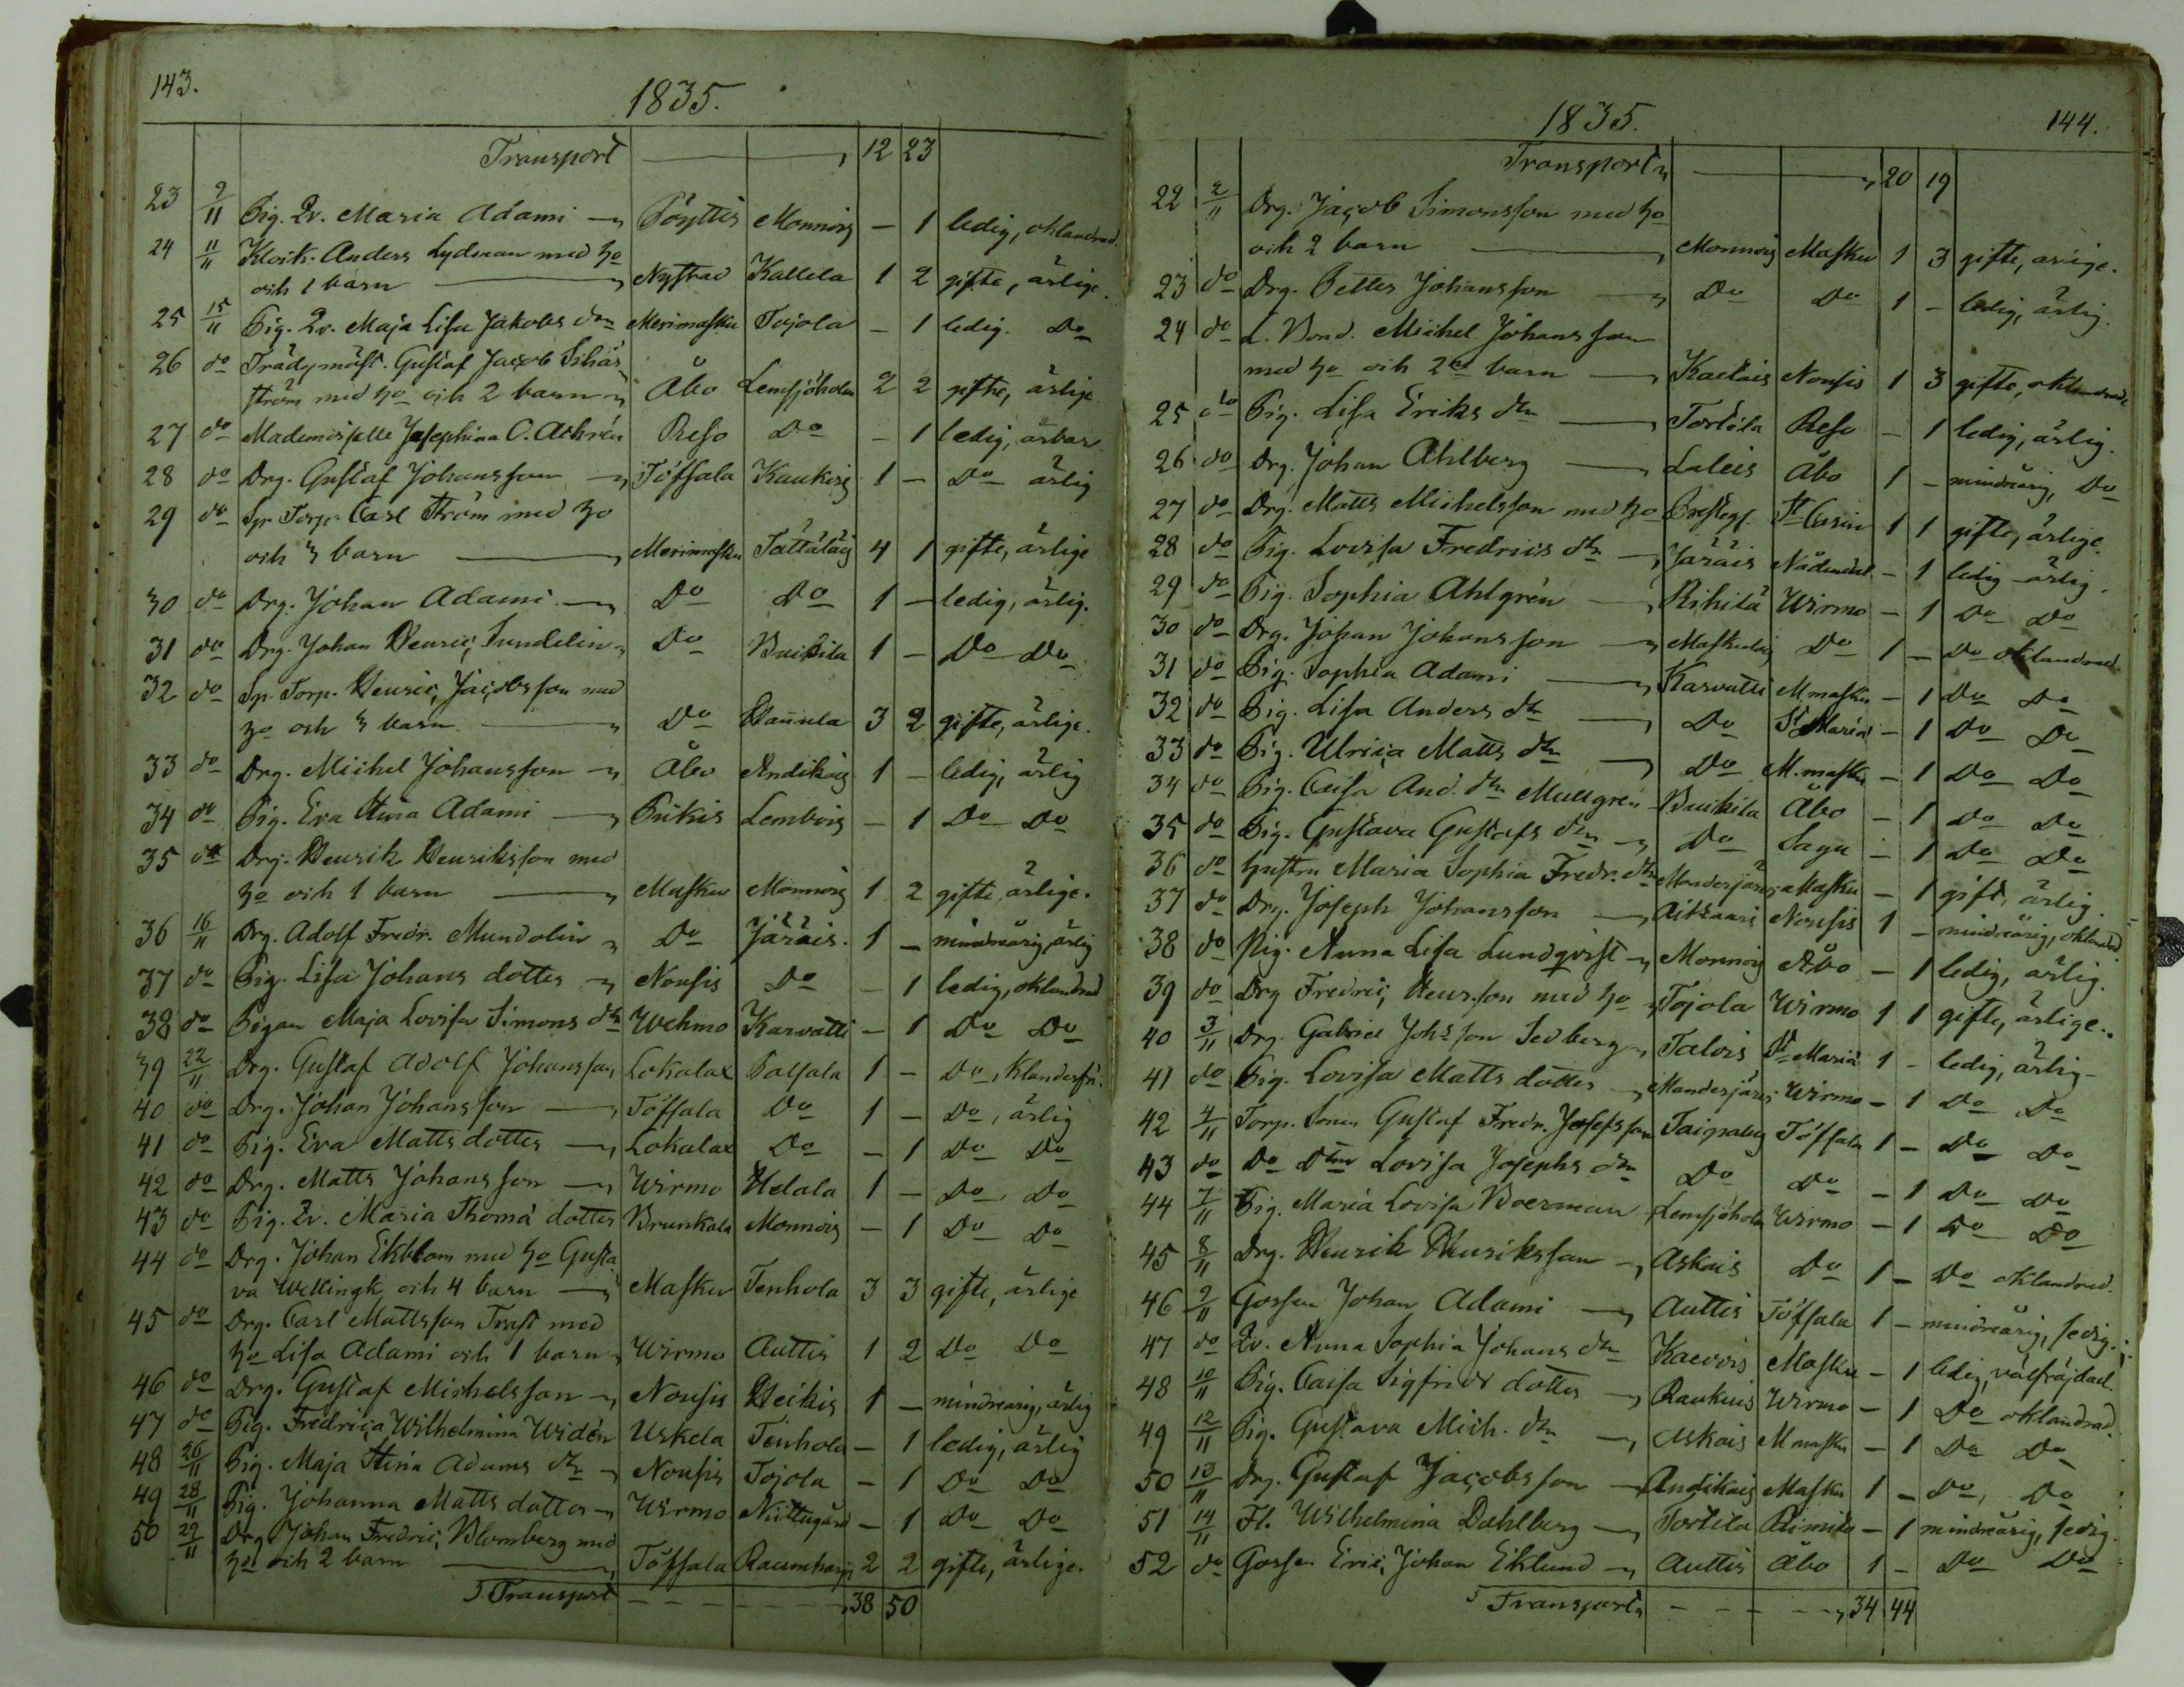 143.
1835.
Transport 12 23
23 9/11 Pig. Qv. Maria Adami Pöyttis Monnois - 1 ledig, oklandrad.
24 11/11 Klock. Anders Lydman med ho
och 1 barn Nystad Kallela 1 2 gifte, ärlige.
25 15/11 Pig. Qv. Maja Lisa Jakobs dr Merimasku Tojola - 1 ledig. Do
26 do Trädgmäst. Gustaf Jacob Silfver
ström med ho och 2 barn Åbo Lemsjöholm 2 2 gifte, ärlige
27 do Mademoiselle Josephina C. Achrén Reso Do - 1 ledig, ärbar
28 do Drg. Gustaf Johansson Töfsala Kaukois 1 - Do ärlig
29 do Sp. Torp. Carl Ström med ho
och 3 barn Merimasku Tattaläis 4 1 gifte, ärlige
30 do Drg. Johan Adami Do Do 1 - ledig, ärlig.
31 do Drg. Johan Henric Sundelin Do Buikila 1 - Do Do
32 do Sp. Torp. Henric Jacobsson med
ho och 3 barn Do Hannula 3 2 gifte, ärlige.
33 do Drg. Michel Johansson Åbo Andikais 1 - ledig, ärlig
34 do Pig. Eva Stina Adami Piikis Lembois - 1 Do Do
35 do Drg. Henrik Henriksson med
ho och 1 barn Masku Monnois 1 2 gifte ärlige.
36 16/11 Drg. Adolf Fredr. Mundolin Do Järäis. 1 - mindreårig, ärlig
37 do Pig. Lisa Johans dotter Nousis Do - 1 ledig, oklandrad
38 do Pigan Maja Lovisa Simons dr Wehmo Karvatti - 1 Do Do
39 22/11 Drg. Gustaf Adolf Johansson Lokalax Palsala 1 - Do, klanderfri.
40 do Drg. Johan Johansson Töfsala Do 1 - Do, ärlig
41 do Pig. Eva Matts dotter Lokalax Do - 1 Do Do
42 do Drg. Matts Johansson Wirmo Helala 1 - Do, Do
43 do Pig. Qv. Maria Thomä dotter Brunkala Monnois - 1 Do Do
44 do Drg. Johan Ekblom med ho Gusta
va Wellingk och 4 barn Masku Tenhola 3 3 gifte, ärlige
45 do Drg. Carl Mattsson Trast med
ho Lisa Adami och 1 barn Wirmo Auttis 1 2 Do Do
46 do Drg. Gustaf Michelsson Nousis Heikis 1 - mindreårig, ärlig
47 do Pig. Fredrica Wilhelmina Widén Uskela Tenhola - 1 ledig, ärlig
48 26/11 Pig. Maja Stina Adams dr Nousis Tojola - 1 Do Do
49 28/11 Pig. Johanna Matts dotter Wirmo Niittugård - 1 Do Do
50 29/11 Drg. Johan Fredric Blomberg med
ho och 2 barn Töfsala Raumharju 2 2 gifte, ärlige.
Transport 38 50
1835.
144.
Transport 20 19
22 2/11 Drg. Jacob Simonsson med ho
och 2 barn Monnois Masku 1 3 gifte, ärlige.
23 do Drg. Petter Johansson Do Do 1 - ledig, ärlig.
24 do L. Bond. Michel Johansson
med ho och 2 barn Kaelais Nousis 1 3 gifte, oklandrade
25 do Pig. Lisa Eriks dr Tortila Reso - 1 ledig, ärlig.
26 do Drg. Johan Ahlberg Laleis Åbo 1 - mindreårig, Do
27 do Drg. Matts Michelsson med ho Presteg. St Carin 1 1 gifte, ärlige.
28 do Pig. Lovisa Fredrics dr Järäis Nådendal - 1 ledig ärlig.
29 do Pig. Sophia Ahlgrén Rikilä Wirmo - 1 Do Do
30 do Drg. Johan Johansson Maskulais Do 1 - Do oklandrad
31 do Pig. Sophia Adami Karvatti M.masku - 1 Do Do
32 do Pig. Lisa Anders dr Do St Mariæ - 1 Do Do
33 do Pig. Ulrica Matts dr Do M.masku - 1 Do Do
34 do Pig. Caisa And. dr Mullgrén Buikila Åbo - 1 Do Do
35 do Pig. Gustava Gustafs dr Do Sagu - 1 Do Do
36 do Hustru Maria Sophia Fredr. dr Manderjärvi Masku - 1 gift, ärlig.
37 do Drg. Joseph Johansson Aitsaari Nousis 1 - mindreårig, oklandrad.
38 do Pig. Anna Lisa Lundqvist Monnois Åbo - 1 ledig, ärlig.
39 do Drg Fredric Henr.son med ho Tojola Wirmo 1 1 gifte, ärlige.
40 3/11 Drg. Gabriel Johsson Sedberg Talois St Mariæ 1 - ledig, ärlig
41 do Pig. Lovisa Matts dotter Manderjärvi Wirmo - 1 Do Do
42 4/11 Torp. Sonen Gustaf Fredr. Josefsson Taipalus Töfsala 1 - Do Do
43 do Do Dttr Lovisa Josephs dr Do Do - 1 Do Do
44 7/11 Pig. Maria Lovisa Boerman Lemsjöholm Wirmo - 1 Do Do
45 8/11 Drg. Henrik Henriksson Askais Do 1 - Do oklandrad.
46 9/11 Gossen Johan Adami Auttis Töfsala 1 - mindreårig, sedig.
47 do Qv. Anna Sophia Johans dr Kaevois Masku - 1 ledig, välfräjdad.
48 10/11 Pig. Caisa Sigfrids dotter Raukuis Wirmo - 1 Do oklandrad.
49 12/11 Pig. Gustava Mich. dr Askais M masku - 1 Do Do
50 13/11 Drg. Gustaf Jacobsson Andikais Masku 1 - Do, Do
51 14/11 Fl. Wilhelmina Dahlberg Tortila Rimito - 1 mindreårig, sedig.
52 do Gossen Eric Johan Eklund Auttis Åbo 1 - Do Do
Transport 34 44